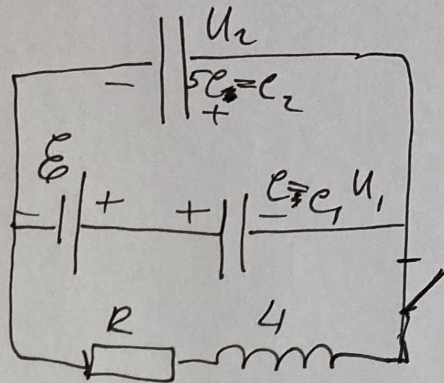 U₂
− 5C = C₂
+
ℰ
− + + − C = C₁ U₁
R L